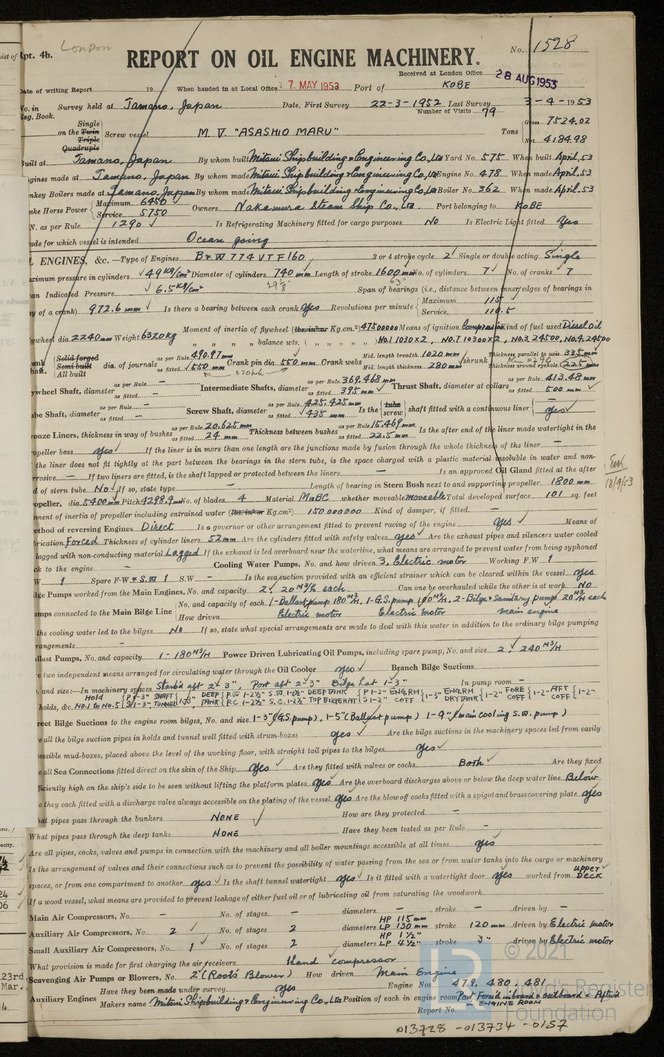 London
Rpt. 4b.
REPORT ON OIL ENGINE MACHINERY.
No. 1528
Received at London Office 28 AUG 1953
Date of writing Report 19 When handed in at Local Office 7 MAY 1953 Port of KOBE
No. in Survey held at Tamano, Japan Date, First Survey 22-3-1952 Last Survey 3-4-1953
Reg. Book. Number of Visits 79
Single
on the Twin Screw vessel M.V. "ASASHIO MARU" Tons Gross 7524.02
Triple
Quadruple Net 4184.98
Built at Tamano, Japan By whom built Mitsui Shipbuilding & Engineering Co., Ltd Yard No. 575 When built April, 53
Engines made at Tamano, Japan By whom made Mitsui Shipbuilding & Engineering Co., Ltd Engine No. 478 When made April, 53
Donkey Boilers made at Tamano, Japan By whom made Mitsui Shipbuilding & Engineering Co., Ltd Boiler No. 362 When made April, 53
Brake Horse Power Maximum 6450
Service 5750 Owners Nakamura Steam Ship Co., Ltd Port belonging to KOBE
N. as per Rule 1290 Is Refrigerating Machinery fitted for cargo purposes. No Is Electric Light fitted. Yes
Trade for which vessel is intended Ocean going
ENGINES, &c. — Type of Engines B & W 774 VTF 160 2 or 4 stroke cycle 2 Single or double acting. Single
Maximum pressure in cylinders 49 Kg/cm² Diameter of cylinders 740 mm Length of stroke 1600 mm No. of cylinders 7 No. of cranks 7
Mean Indicated Pressure 6.5 Kg/cm² Span of bearings (i.e., distance between inner edges of bearings in
way of a crank) 972.6 mm Is there a bearing between each crank Yes Revolutions per minute Maximum 115
Service 110.5
Flywheel dia. 2240 mm Weight 6320 Kg Moment of inertia of flywheel Kg.cm² 47500000 Means of ignition Compression Kind of fuel used Diesel oil
" " balance wts. No.1 1020 X 2, No.7 10300 X 2, No.3, 24500, No.4, 24500
Solid forged
Semi built dia. of journals as per Rule 490.97
All built as fitted 550 Crank pin dia. 550 mm Crank webs Mid. length breadth 1020 mm shrunk Thickness parallel to axis 335 mm
Mid. length thickness 280 mm Thickness around eyehole 225 mm
Flywheel Shaft, diameter as per Rule — as fitted — Intermediate Shafts, diameter as per Rule 369.463 mm as fitted 395 mm Thrust Shaft, diameter at collars as per Rule 413.48 mm as fitted 500 mm
Tube Shaft, diameter as per Rule — as fitted — Screw Shaft, diameter as per Rule 425.425 mm as fitted 435 mm Is the tube screw shaft fitted with a continuous liner yes
Bronze Liners, thickness in way of bushes as per Rule 20.625 mm as fitted 24 mm Thickness between bushes as per Rule 15.469 mm as fitted 22.5 mm Is the after end of the liner made watertight in the
propeller boss yes If the liner is in more than one length are the junctions made by fusion through the whole thickness of the liner —
If the liner does not fit tightly at the part between the bearings in the stern tube, is the space charged with a plastic material insoluble in water and non-
corrosive — If two liners are fitted, is the shaft lapped or protected between the liners — Is an approved Oil Gland fitted at the after
end of stern tube No If so, state type — Length of bearing in Stern Bush next to and supporting propeller 1800 mm
Propeller, dia. 5400 mm Pitch 4298.9 mm No. of blades 4 Material Mn Bc whether moveable moveable Total developed surface 101 sq. feet
Moment of inertia of propeller including entrained water Kg.cm² 150000000 Kind of damper, if fitted —
Method of reversing Engines Direct Is a governor or other arrangement fitted to prevent racing of the engine yes Means of
lubrication Forced Thickness of cylinder liners 52 mm Are the cylinders fitted with safety valves yes Are the exhaust pipes and silencers water cooled
or lagged with non-conducting material Lagged If the exhaust is led overboard near the waterline, what means are arranged to prevent water from being syphoned
back to the engine — Cooling Water Pumps, No. and how driven 3, Electric motor Working F.W. 1
S.W. 1 Spare F.W. & S.W. 1 S.W. — Is the sea suction provided with an efficient strainer which can be cleared within the vessel yes
Bilge Pumps worked from the Main Engines, No. and capacity 2, 20 M³/h each. Can one be overhauled while the other is at work No
Pumps connected to the Main Bilge Line No. and capacity of each 1-Ballast pump 180 M³/h, 1-G.S. pump M³/h, 2-Bilge & Sanitary pumps 20 M³/h each
How driven Electric motor Electric motor main engine
Is the cooling water led to the bilges No If so, state what special arrangements are made to deal with this water in addition to the ordinary bilge pumping
arrangements —
Ballast Pumps, No. and capacity 1 - 180 M³/H Power Driven Lubricating Oil Pumps, including spare pump, No. and size 2, 240 M³/H
Are two independent means arranged for circulating water through the Oil Cooler yes Branch Bilge Suctions
No. and size:— In machinery spaces Starb'd aft 2-3", Port aft 2-3" Bilge hat 1-3" In pump room —
Direct Bilge Suctions to the engine room bilges, No. and size 1-5" (G.S. pump), 1-5" (Ballast pump) 1-9" (main cooling S.W. pump)
Are all the bilge suction pipes in holds and tunnel well fitted with strum-boxes yes Are the bilge suctions in the machinery spaces led from easily
accessible mud-boxes, placed above the level of the working floor, with straight tail pipes to the bilges yes
Are all Sea Connections fitted direct on the skin of the Ship yes Are they fitted with valves or cocks Both Are they fixed
sufficiently high on the ship's side to be seen without lifting the platform plates yes Are the overboard discharges above or below the deep water line Below
Are they each fitted with a discharge valve always accessible on the plating of the vessel yes Are the blow off cocks fitted with a spigot and brass covering plate yes
What pipes pass through the bunkers NONE How are they protected —
What pipes pass through the deep tanks NONE Have they been tested as per Rule —
Are all pipes, cocks, valves and pumps in connection with the machinery and all boiler mountings accessible at all times yes
Is the arrangement of valves and their connections such as to prevent the possibility of water passing from the sea or from water tanks into the cargo or machinery
spaces, or from one compartment to another yes Is the shaft tunnel watertight yes Is it fitted with a watertight door yes worked from UPPER DECK
If a wood vessel, what means are provided to prevent leakage of either fuel oil or of lubricating oil from saturating the woodwork —
Main Air Compressors, No. — No. of stages — diameters — stroke — driven by —
Auxiliary Air Compressors, No. 2 No. of stages 2 diameters HP 115 mm LP 130 mm stroke 120 mm driven by Electric motor
Small Auxiliary Air Compressors, No. 1 No. of stages 2 diameters HP 1½" LP 4½" stroke 3" driven by Electric motor
What provision is made for first charging the air receivers Hand compressor
Scavenging Air Pumps or Blowers, No. 2 (Roots Blower) How driven Main Engine
Auxiliary Engines Have they been made under survey yes Engine Nos. 479, 480, 481
Makers name Mitsui Shipbuilding & Engineering Co., Ltd Position of each in engine room
ENGINE ROOM
Report No.
© 2021
Lloyd's Register
Foundation
013728 - 013734 - 0157